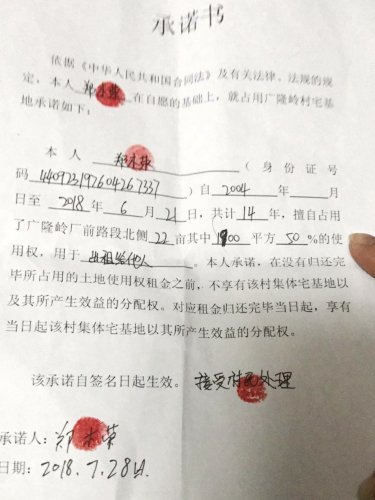 承诺书
依据《中华人民共和国合同法》及有关法律、法规的规
定，本人郑木荣在自愿的基础上，就占用广隆岭村宅基
地承诺如下：
本人郑木荣（身份证号
码440923197604267337）自2004年 月
日至2018年6月21日，共计14年，擅自占用
了广隆岭厂前路段北侧22亩其中1900平方50%的使
用权，用于出租给他人。本人承诺，在没有归还完
毕所占用的土地使用权租金之前，不享有该村集体宅基地以
及其所产生效益的分配权。对应租金归还完毕当日起，享有
当日起该村集体宅基地以其所产生效益的分配权。
该承诺自签名日起生效。接受村民处理
承诺人：郑木荣
日期：2018.7.28日